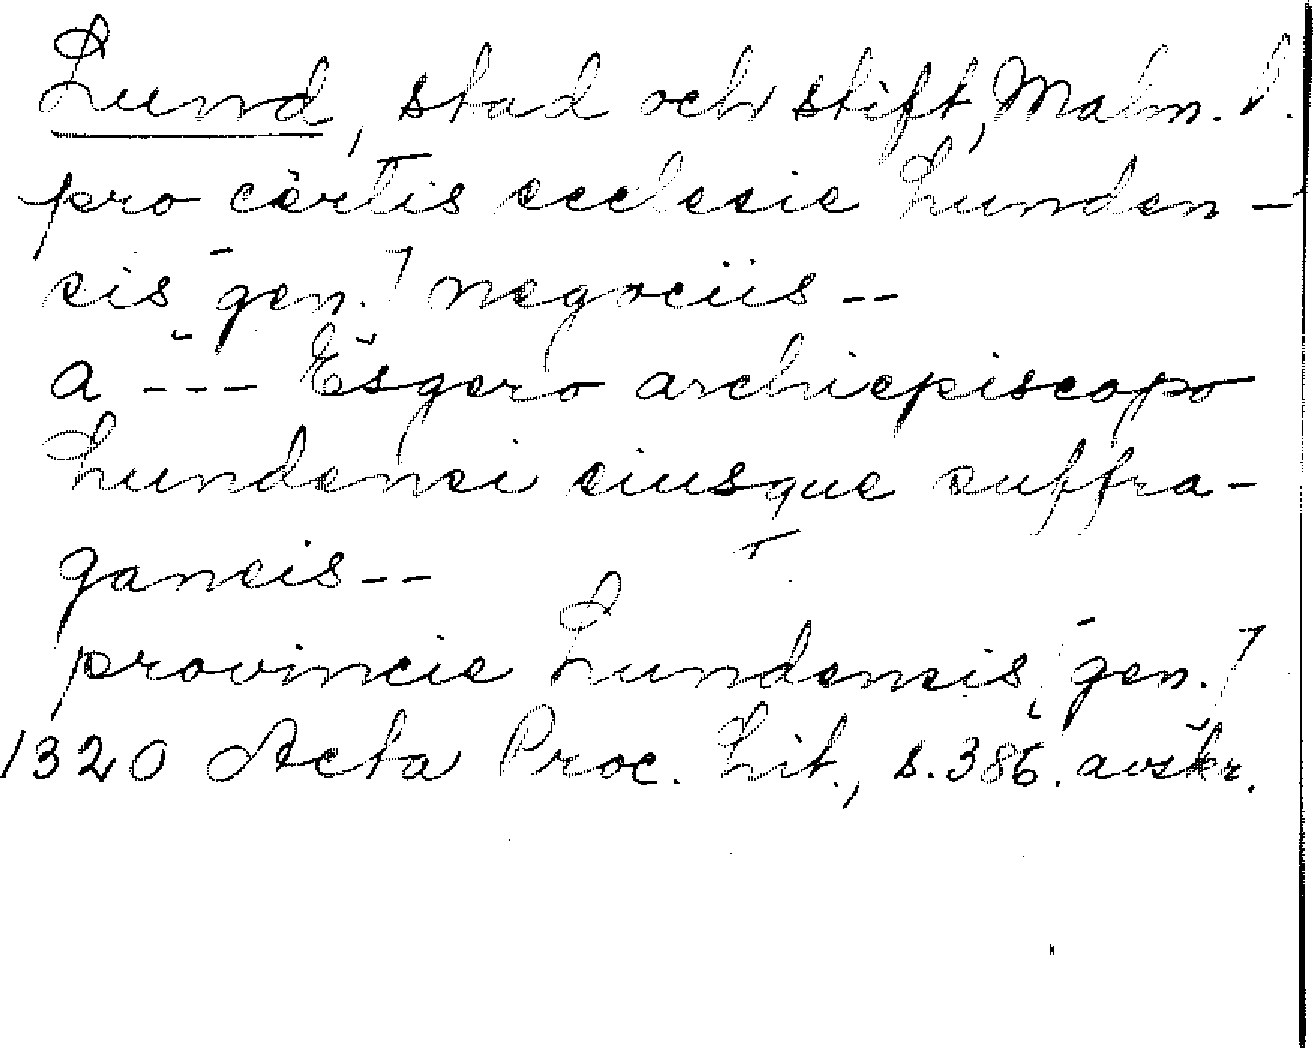 Lund, stad och stift, Malm. l.
pro certis ecclesie Lunden-
sis [gen.] negociis --
a --- Esgero archiepiscopo
Lundensi eiusque suffra-
ganeis --
provincie Lundensis, [gen.]
1320 Acta Proc. Lit., s. 386. avskr.